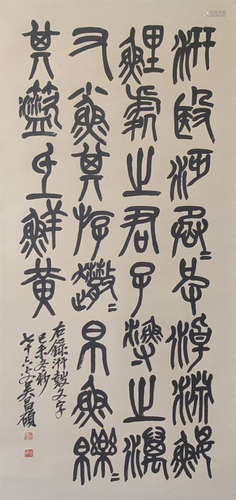 汧殹沔沔丞皮淖淵鰋
鯉處之君子漁之澫
又小魚其斿帛魚皪皪
其籃氐鮮黃
右錄汧殹文字
己未冬杪
七十六叟吳昌碩